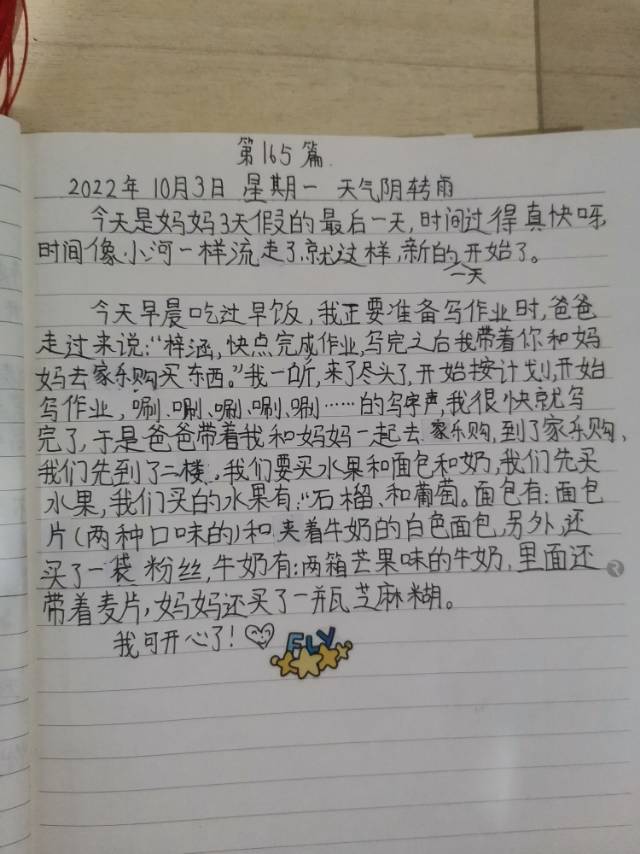 第165篇
2022年10月3日 星期一 天气阴转雨
今天是妈妈3天假的最后一天,时间过得真快呀,
时间像小河一样流走了,就这样,新的一天开始了。
今天早晨吃过早饭,我正要准备写作业时,爸爸
走过来说:“梓涵,快点完成作业,写完之后我带着你和妈
妈去家乐购买东西。”我一听,来了尽头了,开始按计划,开始
写作业,唰、唰、唰、唰、唰……的写字声,我很快就写
完了,于是爸爸带着我和妈妈一起去家乐购,到了家乐购、
我们先到了二楼。我们要买水果和面包和奶,我们先买
水果,我们买的水果有:“石榴、和葡萄。面包有:面包
片(两种口味的)和夹着牛奶的白色面包,另外,还
买了一袋粉丝,牛奶有:两箱芒果味的牛奶,里面还
带着麦片,妈妈还买了一瓶芝麻糊。
我可开心了!
FLY